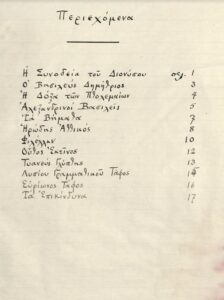 Περιεχόμενα
Ἡ Συνοδεία τοῦ Διονύσου σελ. 1
Ὁ Βασιλεὺς Δημήτριος 3
Ἡ Δόξα τῶν Πτολεμαίων 4
Ἀλεξανδρινοὶ Βασιλεῖς 5
Τὰ Βήματα 7
Ἡρώδης Ἀττικός 8
Φιλέλλην 10
Οὗτος Ἐκεῖνος 12
Τυανεὺς Γλύπτης 13
Λυσίου Γραμματικοῦ Τάφος 15
Εὐρίωνος Τάφος 16
Τὰ Ἐπικίνδυνα 17